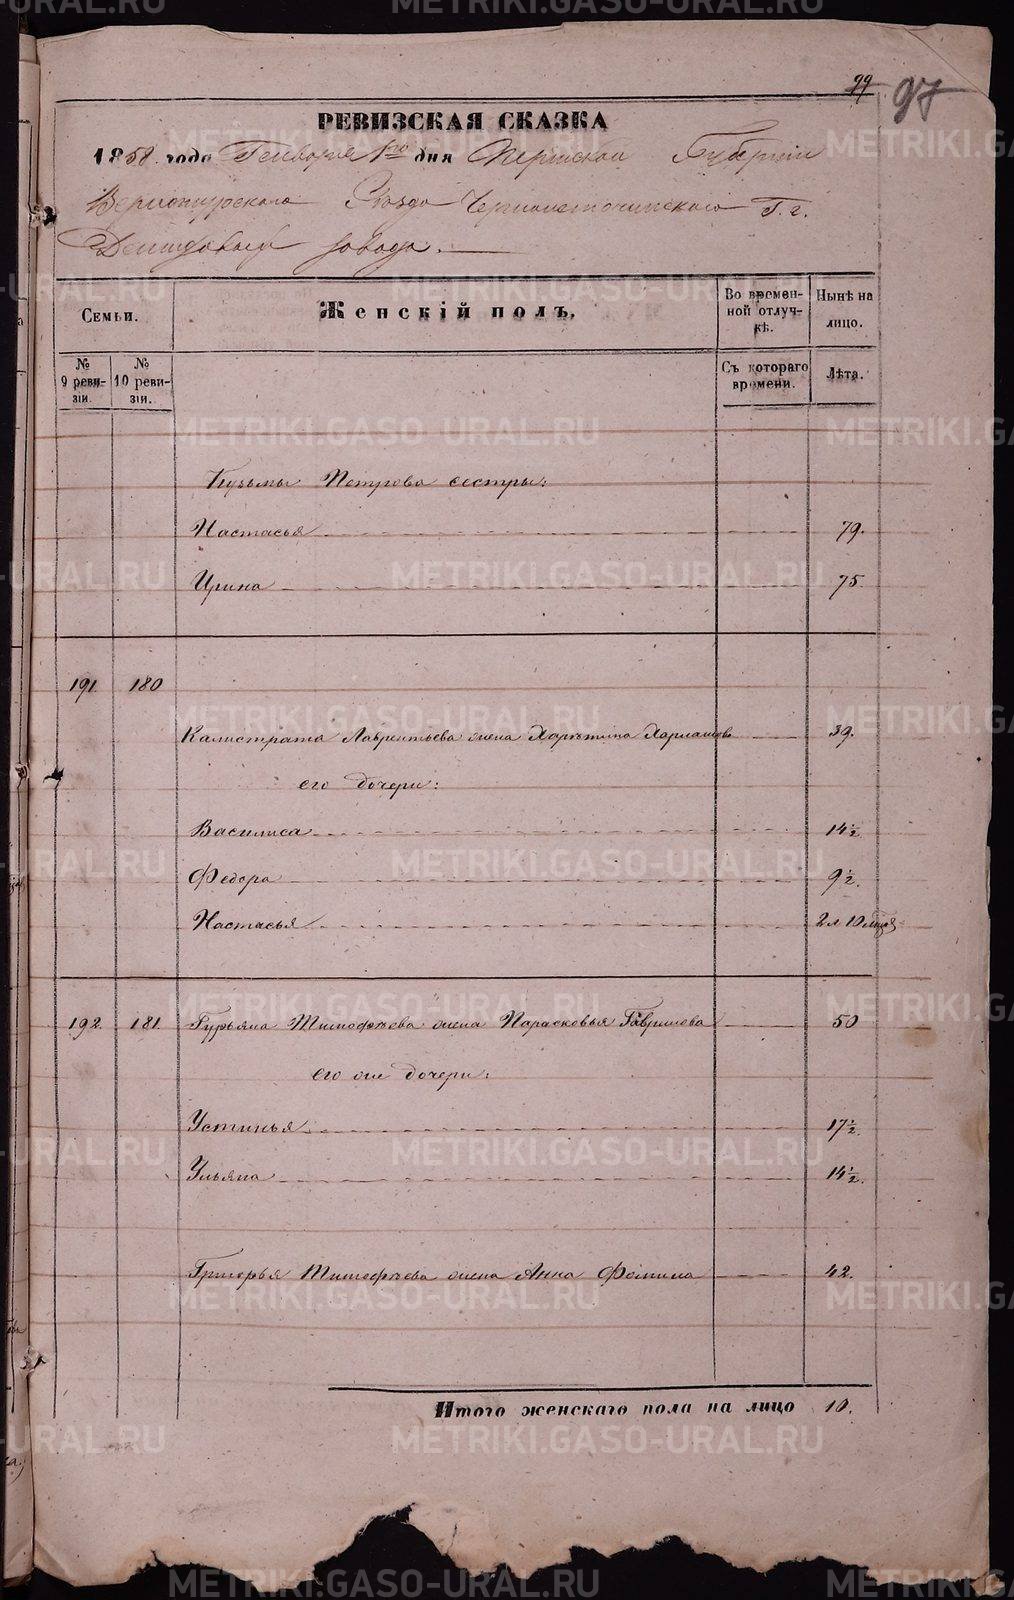 99 97
РЕВИЗСКАЯ СКАЗКА
1858 года Генваря 1го дня Пермской Губернии
Верхотурскаго Уезда Черноисточинскаго Г. г.
Демидовых завода.
Семьи.
Женскій полъ.
Во времен-
ной отлуч-
кѣ.
Нынѣ на
лицо.
№
9 реви-
зіи.
№
10 реви-
зіи.
Съ котораго
времени.
Лѣта.
Кузьмы Петрова сестры:
Настасья 79.
Ирина 75.
191 180
Калистрата Лаврентьева жена Харитина Харламова 39.
его дочери:
Василиса 14½
Федора 9½.
Настасья 2 л 10 мцов
192. 181. Гурьяна Тимофѣева жена Парасковья Гаврилова 50
его же дочери:
Устинья 17½.
Ульяна 14½.
Григорья Тимофѣева жена Анна Фомина 42.
Итого женскаго пола на лицо 10.
METRIKI.GASO-URAL.RU